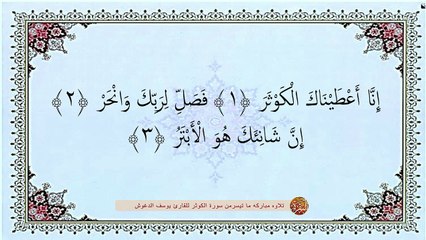 إِنَّا أَعْطَيْنَاكَ الْكَوْثَرَ ﴿١﴾ فَصَلِّ لِرَبِّكَ وَانْحَرْ ﴿٢﴾
إِنَّ شَانِئَكَ هُوَ الْأَبْتَرُ ﴿٣﴾
تلاوه مباركه ما تيسرمن سورة الكوثر للقارئ يوسف الدغوش